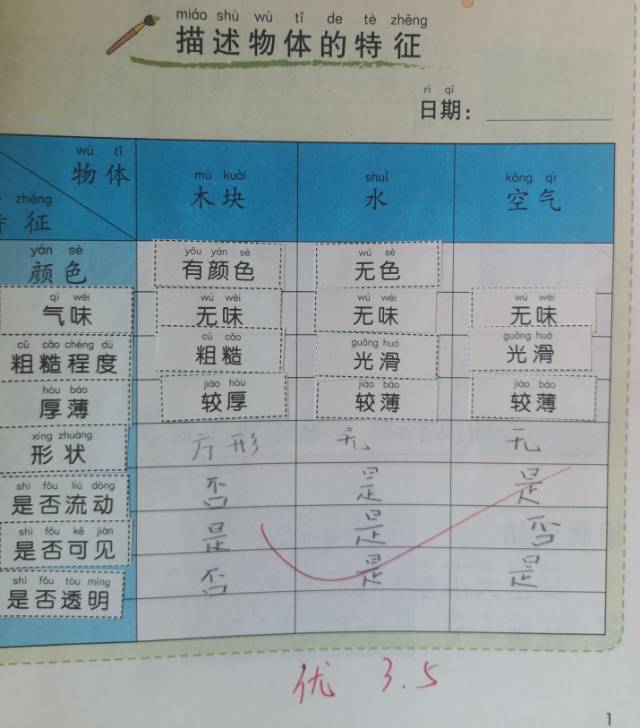 miáo shù wù tǐ de tè zhēng
描述物体的特征
rì qī
日期：
wù tǐ
物体
mù kuài shuǐ kōng qì
木块 水 空气
zhēng
征
yán sè yǒu yán sè wú sè
颜色 有颜色 无色
qì wèi wú wèi wú wèi wú wèi
气味 无味 无味 无味
cū cāo chéng dù cū cāo guāng huá guāng huá
粗糙程度 粗糙 光滑 光滑
hòu báo jiào hòu jiào báo jiào báo
厚薄 较厚 较薄 较薄
xíng zhuàng
形状 方形 无 无
shì fǒu liú dòng
是否流动 否 是 是
shì fǒu kě jiàn
是否可见 是 是 否
shì fǒu tòu míng
是否透明 否 是 是
优 3.5
1